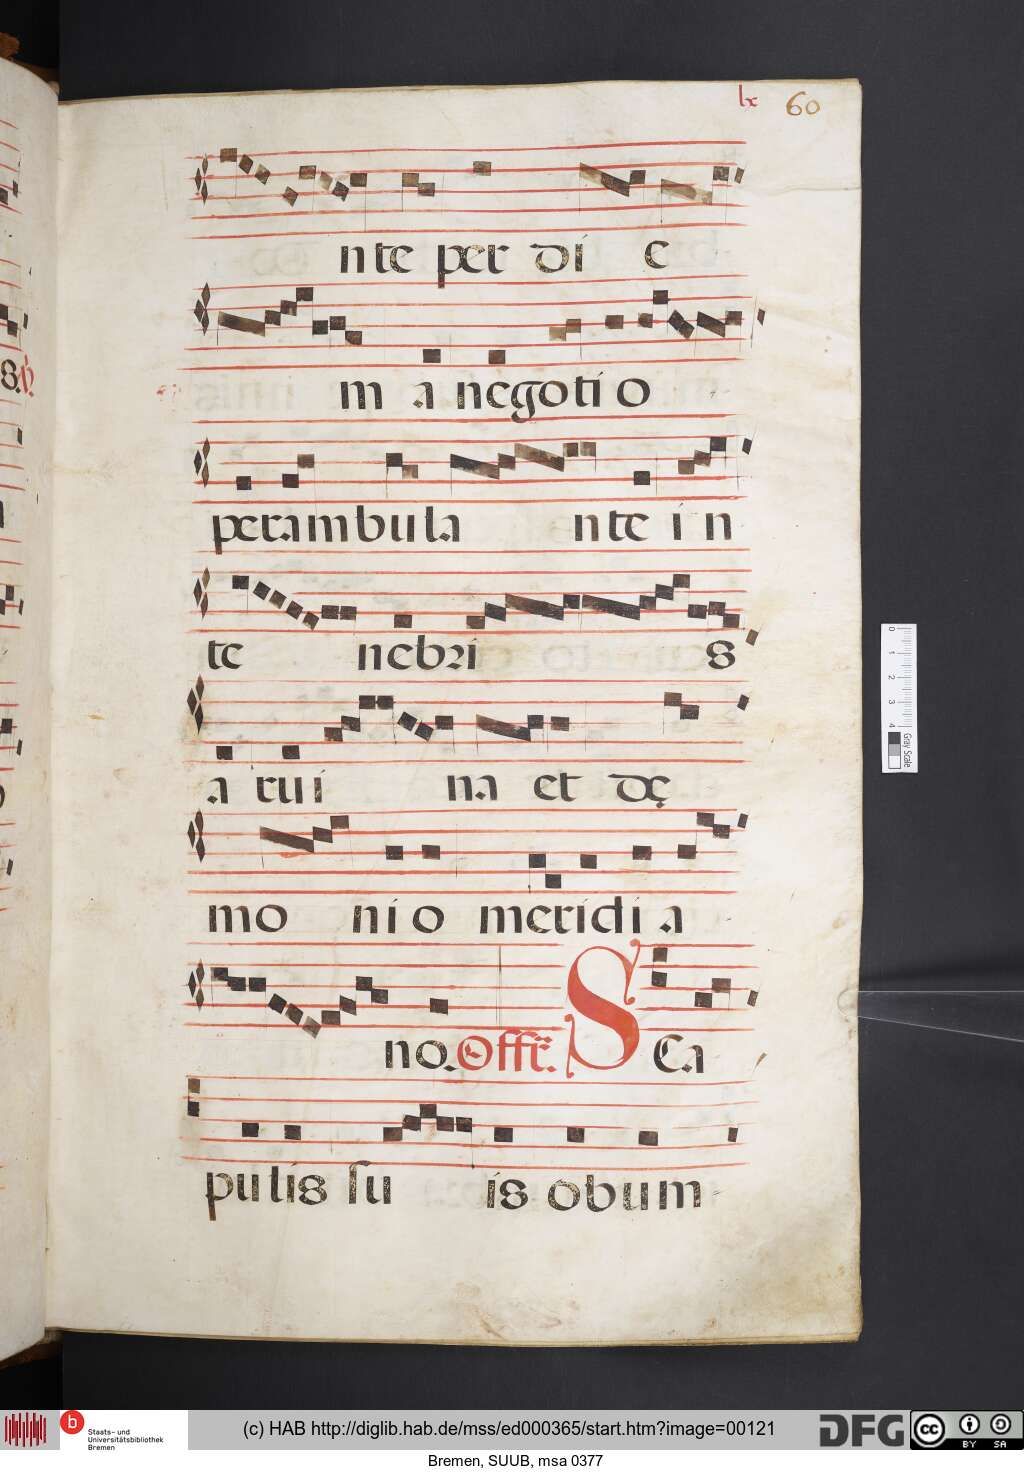 lx 60
nte per di e
m a negoti o
perambula nte i n
te nebri s
a rui na et dę
mo nio meridi a
no. Offr̄. S Ca
pulis su is obum
S. ℟.
0 1 2 3 4
Gray Scale
b Staats- und Universitätsbibliothek Bremen
(c) HAB http://diglib.hab.de/mss/ed000365/start.htm?image=00121
DFG
cc BY SA
Bremen, SUUB, msa 0377